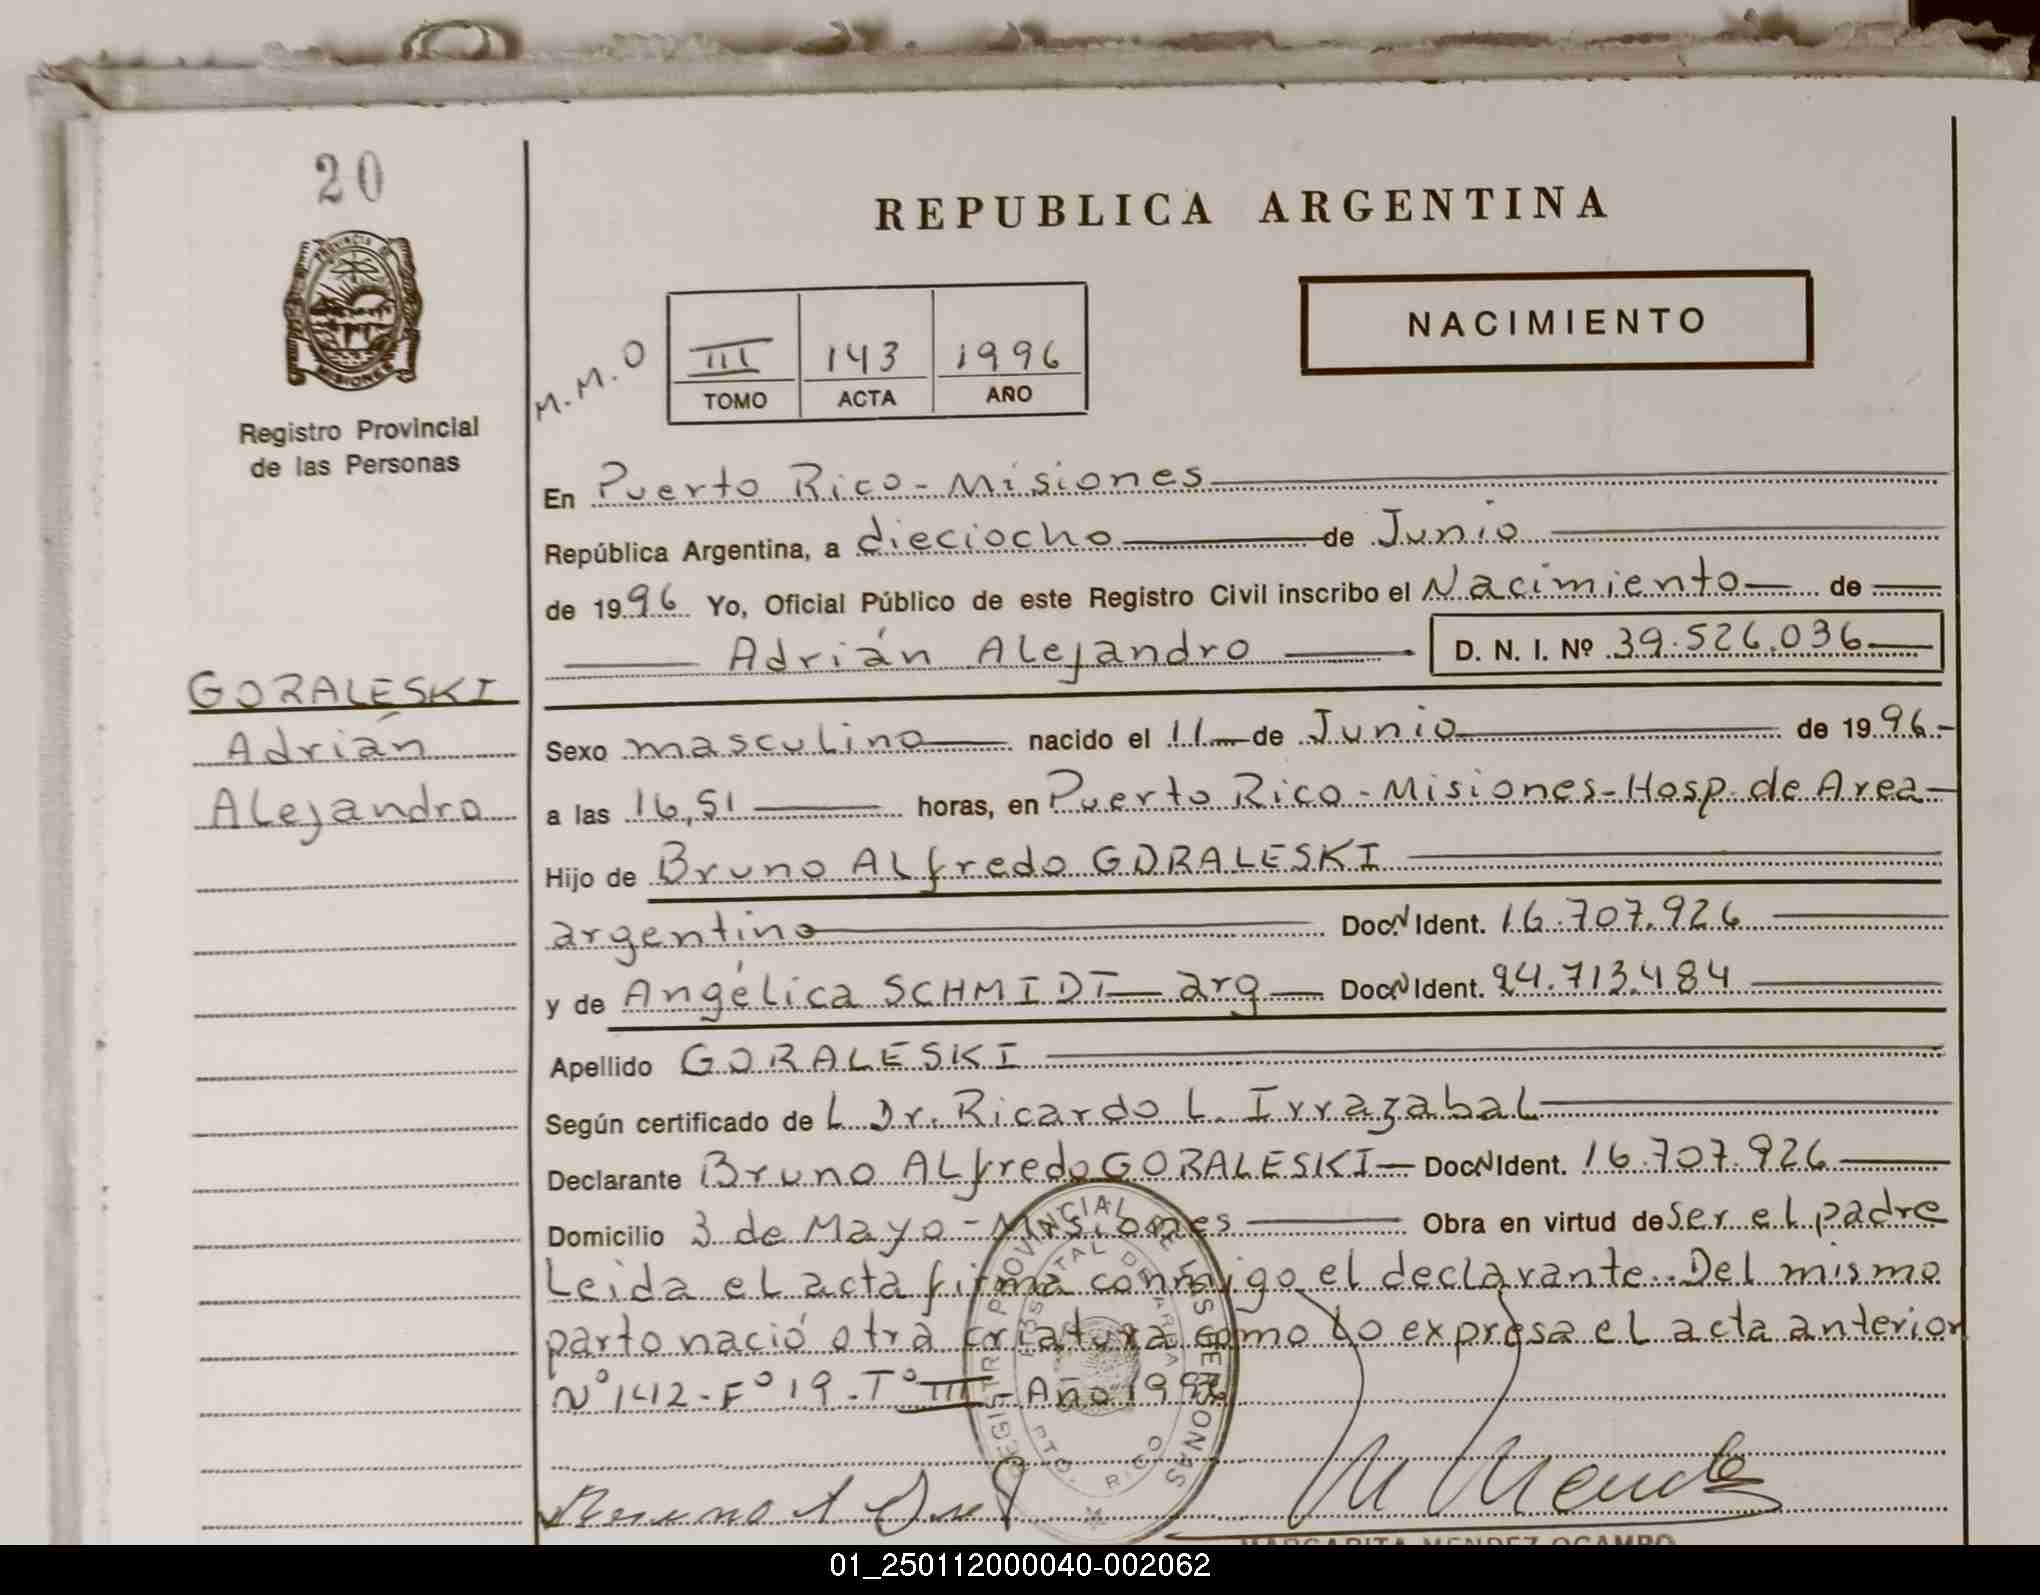 20
PROVINCIA DE
MISIONES
Registro Provincial
de las Personas
REPUBLICA ARGENTINA
NACIMIENTO
M.M.O
III 143 1996
TOMO ACTA AÑO
En Puerto Rico - Misiones
República Argentina, a dieciocho de Junio
de 1996 Yo, Oficial Público de este Registro Civil inscribo el Nacimiento de
Adrián Alejandro D. N. I. Nº 39.526.036
GORALESKI
Adrián
Alejandro
Sexo masculino nacido el 11 de Junio de 1996.-
a las 16,51 horas, en Puerto Rico - Misiones - Hosp. de Area
Hijo de Bruno ALfredo GORALESKI
argentino Doc. N Ident. 16.707.926
y de Angélica SCHMIDT arg Doc. N Ident. 24.713.484
Apellido GORALESKI
Según certificado de L Dr. Ricardo L. Irrazabal
Declarante Bruno ALfredo GORALESKI Doc. N Ident. 16.707.926
Domicilio 3 de Mayo - Misiones Obra en virtud de ser el padre
Leida el acta firma conmigo el declarante. Del mismo
parto nació otra criatura como lo expresa el acta anterior
Nº 142 - Fº 19 - Tº III - Año 1996
REGISTRO PROVINCIAL DE LAS PERSONAS
HOSPITAL DE AREA
PTO. RICO
M Mendez
MARGARITA MENDEZ OCAMPO
01_250112000040-002062